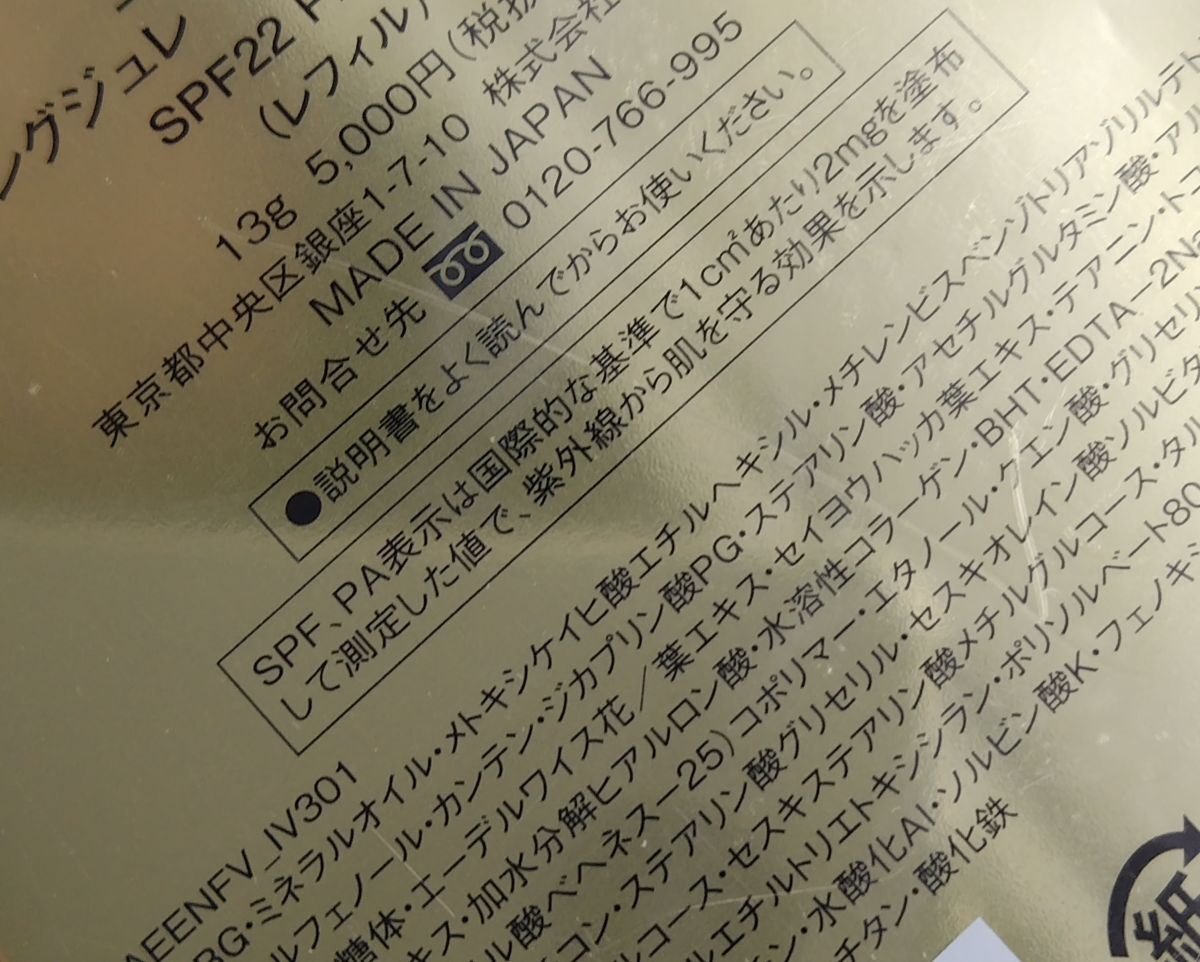 ングジュレ
SPF22
(レフィル)
13g 5,000円(税抜
東京都中央区銀座1-7-10 株式会社
MADE IN JAPAN
お問合せ先 0120-766-995
●説明書をよく読んでからお使いください。
SPF、PA表示は国際的な基準で1cm²あたり2mgを塗布
して測定した値で、紫外線から肌を守る効果を示します。
AEENFV_IV301
BG・ミネラルオイル・メトキシケイヒ酸エチルヘキシル・メチレンビスベンゾトリアゾリルテト
ルフェノール・カンテン・ジカプリン酸PG・ステアリン酸・アセチルグルタミン酸・アル
糖体・エーデルワイス花／葉エキス・セイヨウハッカ葉エキス・テアニン・ト
キス・加水分解ヒアルロン酸・水溶性コラーゲン・BHT・EDTA－2Na
ル酸ベヘネス－25)コポリマー・エタノール・クエン酸・グリセリ
コン・ステアリン酸グリセリル・セスキオレイン酸ソルビタ
ルコース・セスキステアリン酸メチルグルコース・タル
ルエチルトリエトキシシラン・ポリソルベート80
ン・水酸化Al・ソルビン酸K・フェノキシ
チタン・酸化鉄
紙